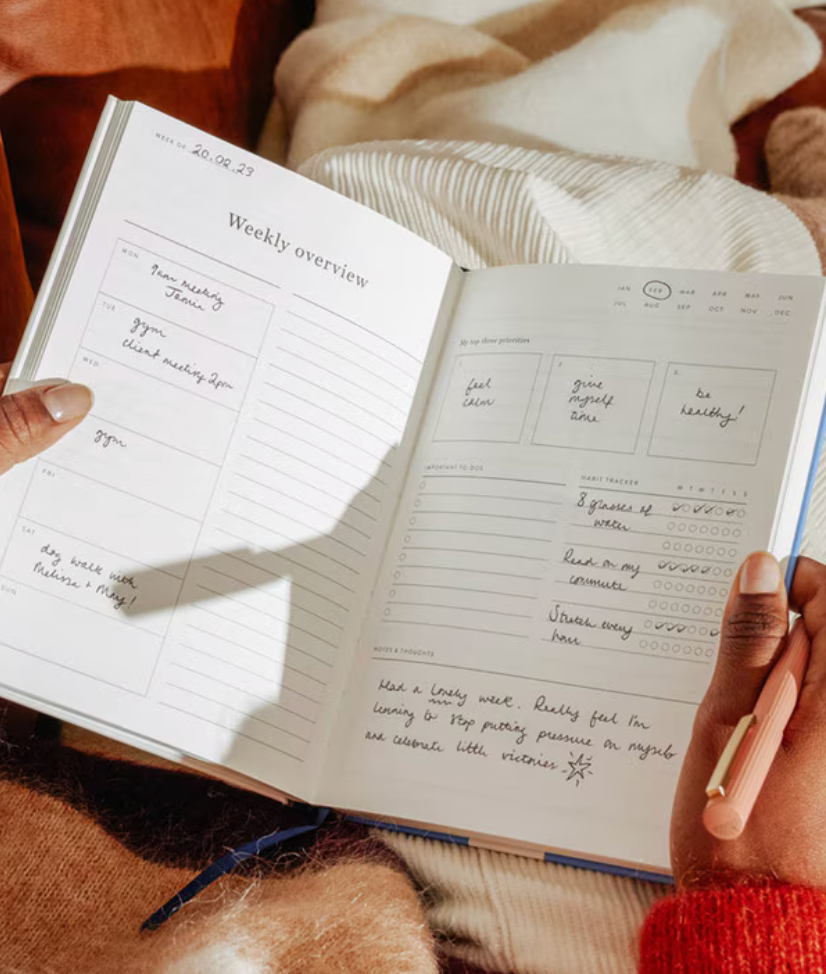 WEEK OF 20.02.23
Weekly overview
MON
9am meeting
Jamie
TUE
gym
client meeting 2pm
WED
gym
FRI
SAT
dog walk with
Melissa + Mary!
SUN
JAN FEB MAR APR MAY JUN
JUL AUG SEP OCT NOV DEC
My top three priorities
1.
feel
calm
2.
give
myself
time
3.
be
healthy!
IMPORTANT TO DOS
HABIT TRACKER M T W T F S S
8 glasses of
water
Read on my
commute
Stretch every
hour
NOTES & THOUGHTS
Had a lovely week. Really feel I'm
learning to stop putting pressure on myself
and celebrate little victories